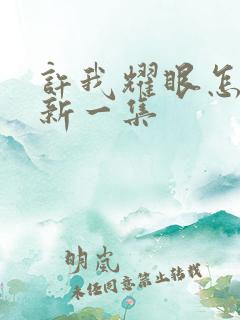 許我耀眼怎
新一集
明岚
未经同意禁止转载